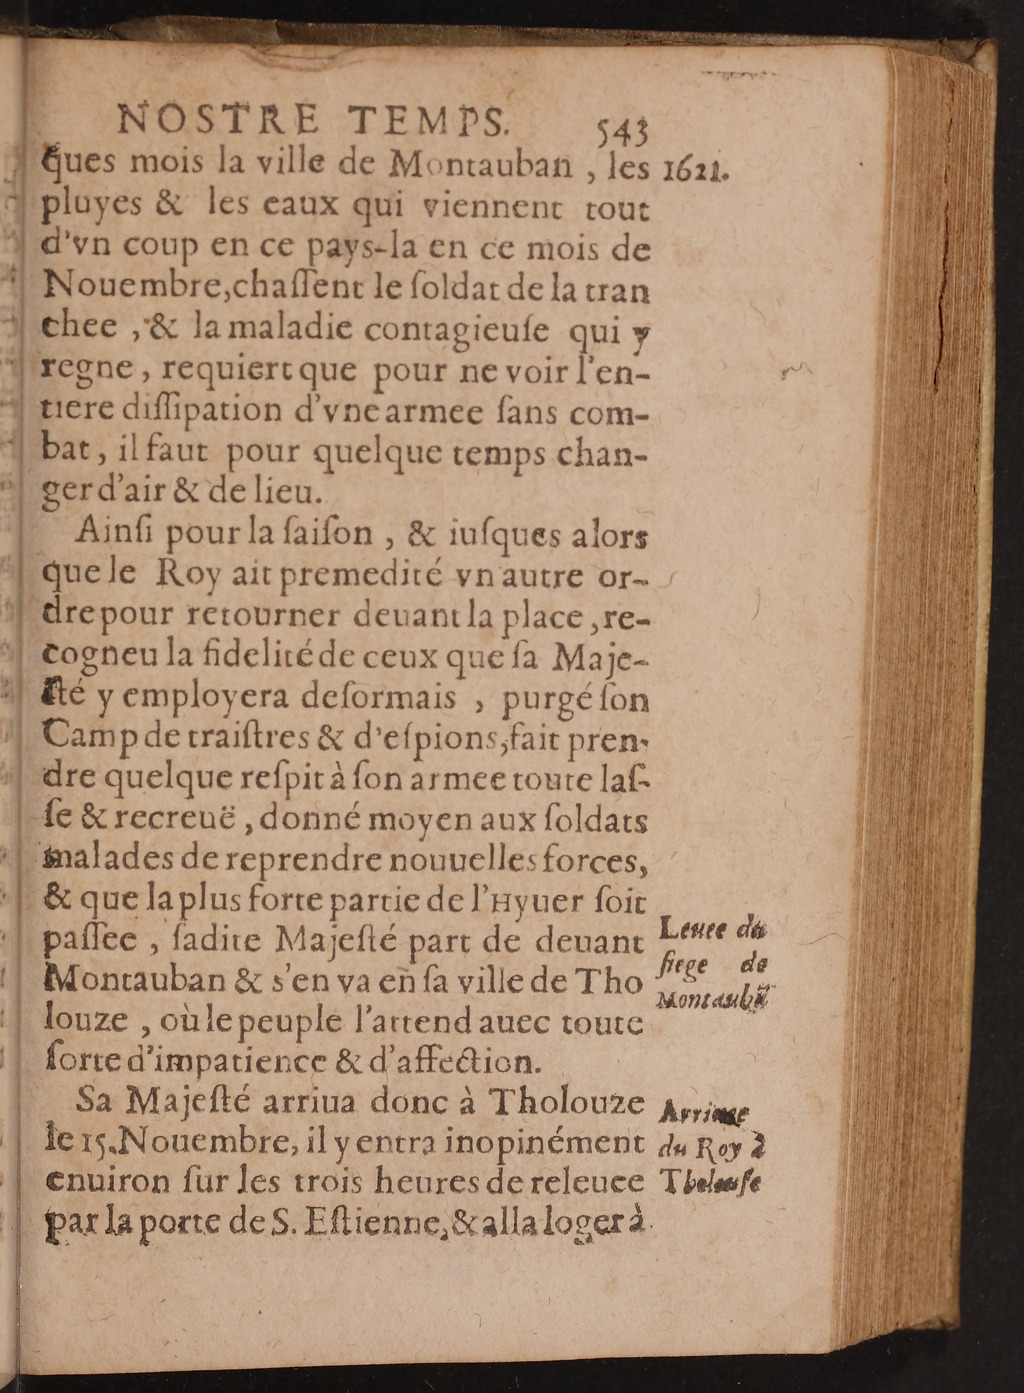 NOSTRE TEMPS. 543
ques mois la ville de Montauban , les 1621.
pluyes & les eaux qui viennent tout
d'vn coup en ce pays-la en ce mois de
Nouembre,chaſſent le ſoldat de la tran
chee , & la maladie contagieuſe qui y
regne , requiert que pour ne voir l'en-
tiere diſſipation d'vne armee ſans com-
bat , il faut pour quelque temps chan-
ger d'air & de lieu.
Ainſi pour la ſaiſon , & iuſques alors
que le Roy ait premedité vn autre or-
dre pour retourner deuant la place ,re-
cogneu la fidelité de ceux que ſa Maje-
ſté y employera deſormais , purgé ſon
Camp de traiſtres & d'eſpions,fait pren-
dre quelque reſpit à ſon armee toute laſ-
ſe & recreuë , donné moyen aux ſoldats
malades de reprendre nouuelles forces,
& que la plus forte partie de l'Hyuer ſoit
paſſee , ſadite Majeſté part de deuant
Montauban & s'en va en ſa ville de Tho
louze , où le peuple l'attend auec toute
ſorte d'impatience & d'affection.
Leuee du
ſiege de
Montaubã
Sa Majeſté arriua donc à Tholouze
le 15.Nouembre, il y entra inopinément
enuiron ſur les trois heures de releuee
par la porte de S. Eſtienne,& alla loger à
Arriuee
du Roy à
Tholouſe